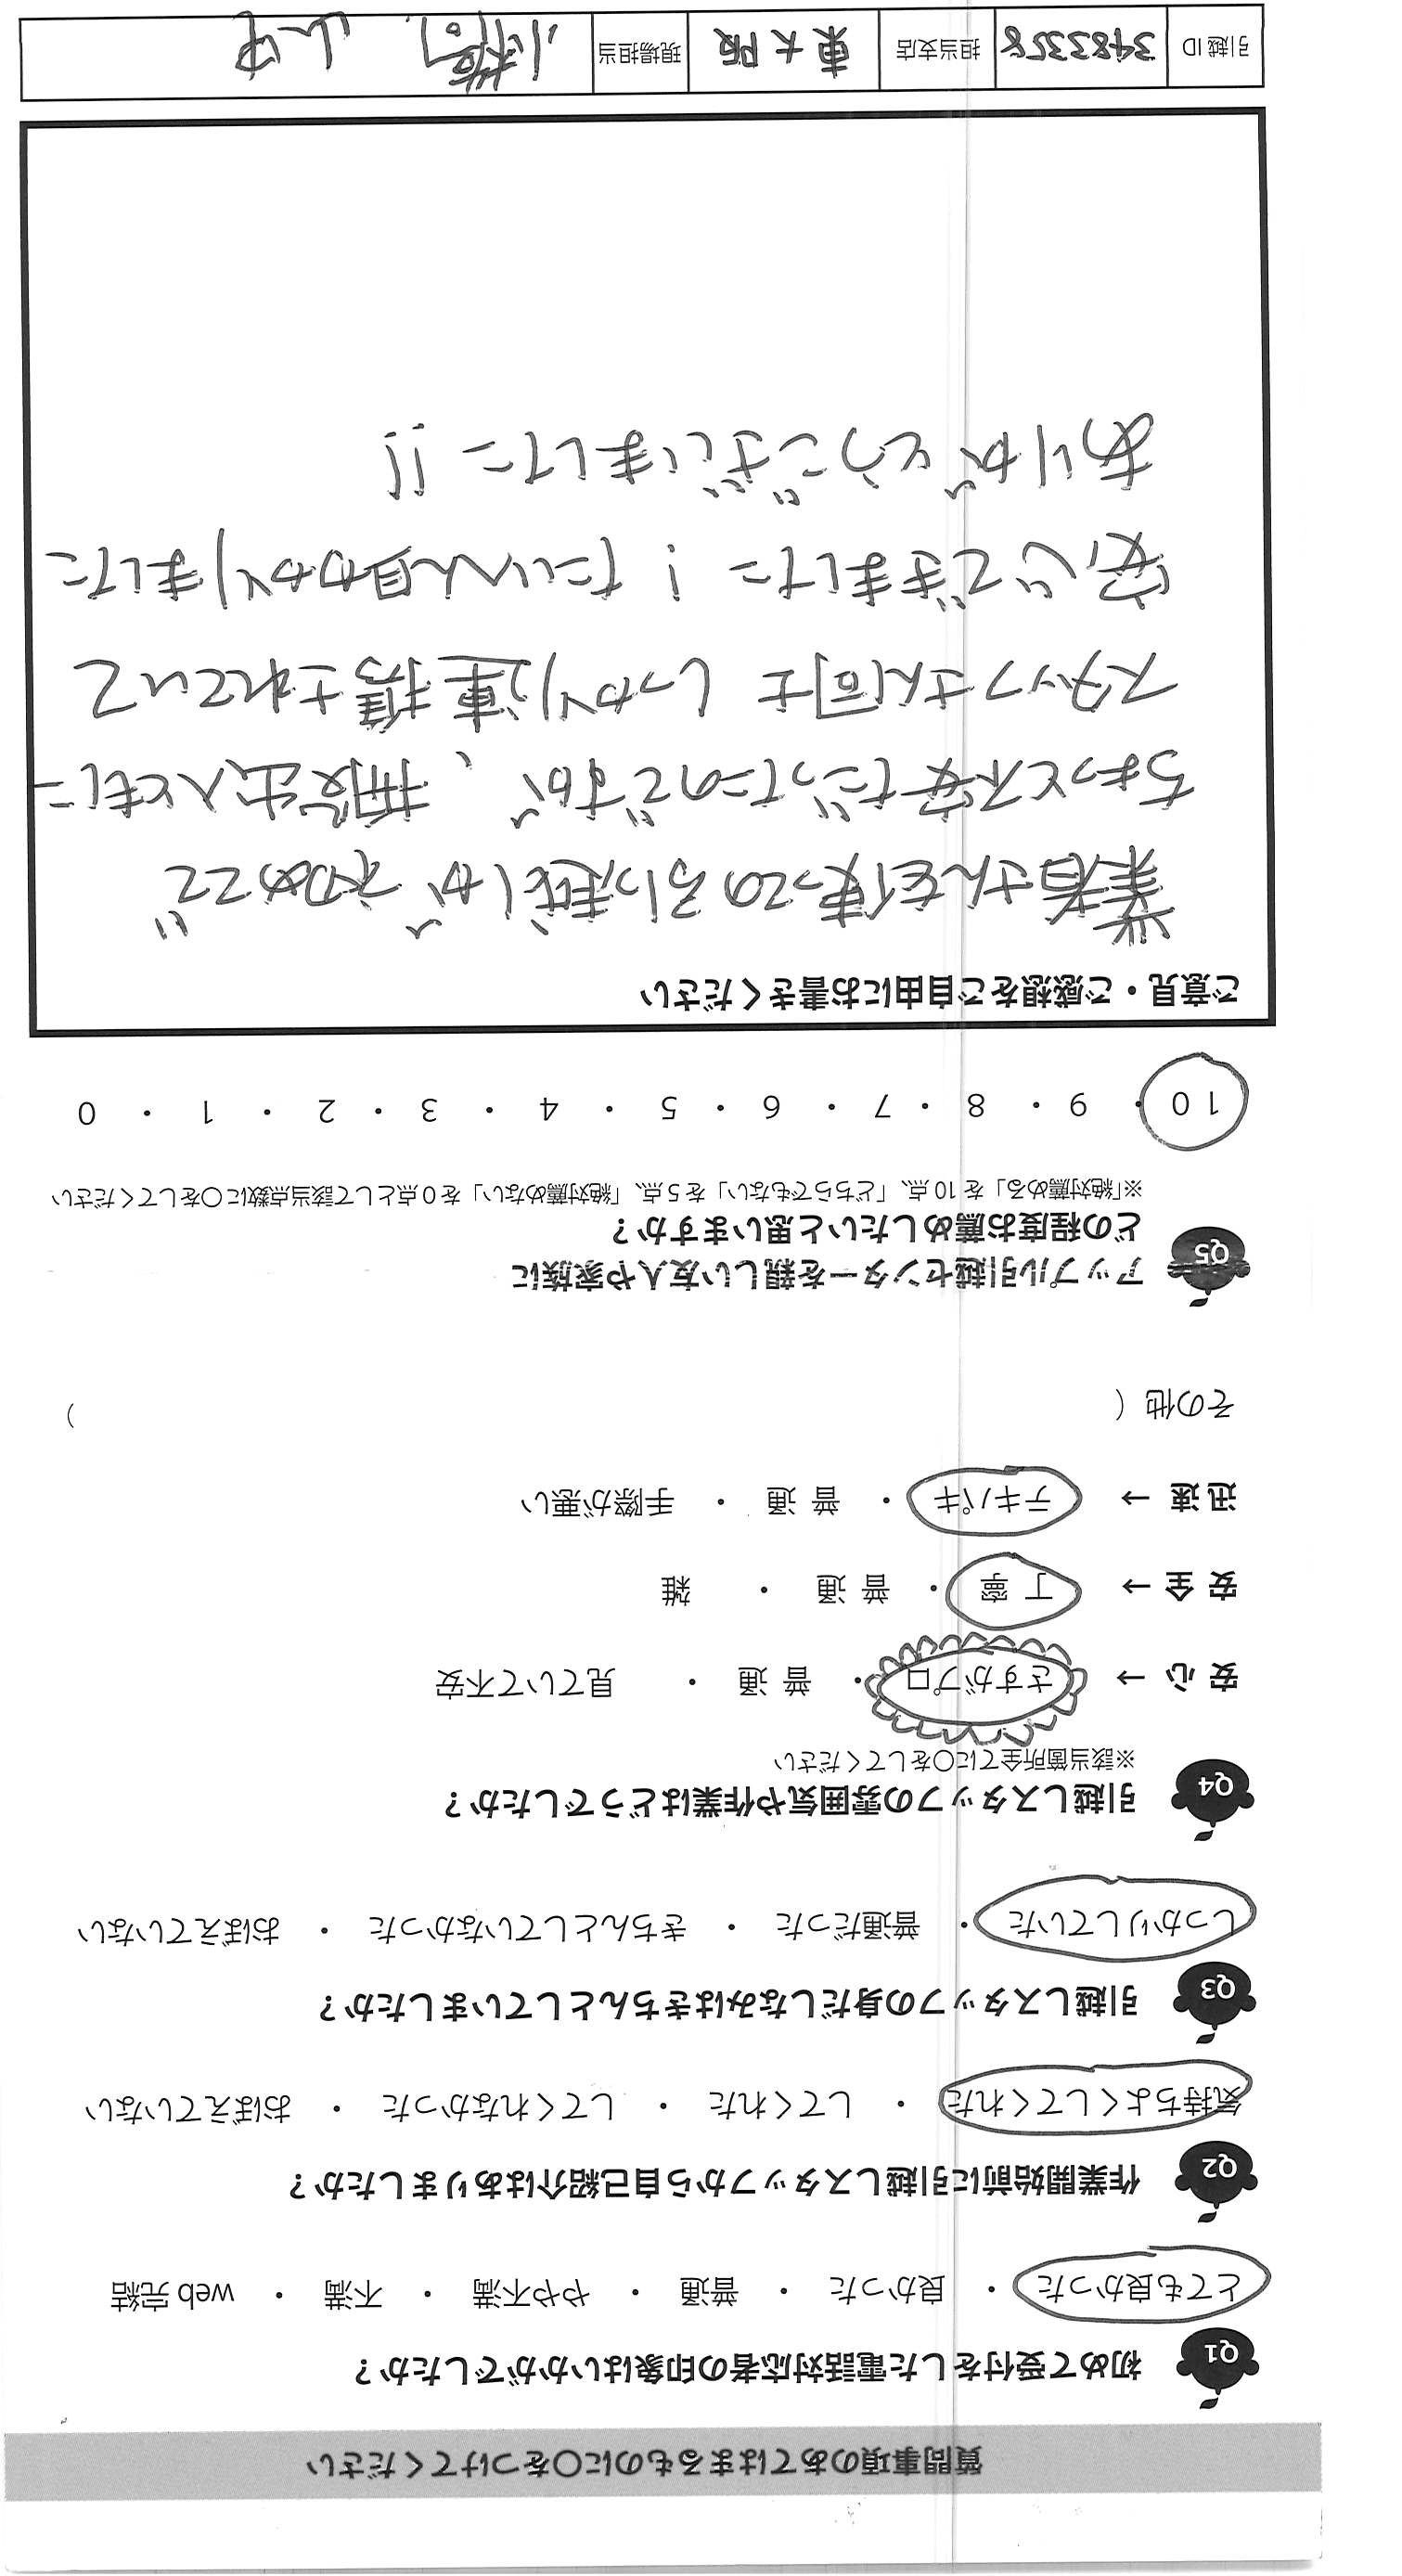 質問事項のあてはまるものに〇をつけてください
Q1 初めて受付をした電話対応者の印象はいかがでしたか？
とても良かった ・ 良かった ・ 普通 ・ やや不満 ・ 不満 ・ web完結
Q2 作業開始前に引越しスタッフから自己紹介はありましたか？
気持ちよくしてくれた ・ してくれた ・ してくれなかった ・ おぼえていない
Q3 引越しスタッフの身だしなみはきちんとしていましたか？
しっかりしていた ・ 普通だった ・ きちんとしていなかった ・ おぼえていない
Q4 引越しスタッフの雰囲気や作業はどうでしたか？
※該当箇所全てに〇をしてください
安心 → さすがプロ ・ 普通 ・ 見ていて不安
安全 → 丁寧 ・ 普通 ・ 雑
迅速 → テキパキ ・ 普通 ・ 手際が悪い
その他（ ）
Q5 アップル引越センターを親しい友人や家族に
どの程度お薦めしたいと思いますか？
※「絶対薦める」を10点、「どちらでもない」を5点、「絶対薦めない」を0点として該当点数に〇をしてください
10 ・ 9 ・ 8 ・ 7 ・ 6 ・ 5 ・ 4 ・ 3 ・ 2 ・ 1 ・ 0
ご意見・ご感想をご自由にお書きください
業者さんを使っての引っ越しが初めてで
ちょっと不安だったのですが、搬出入ともに
スタッフさん同士しっかり連携されていて
安心できました！たいへん助かりました
ありがとうございました!!
引越ID 3483358 担当支店 東大阪 現場担当 小橋